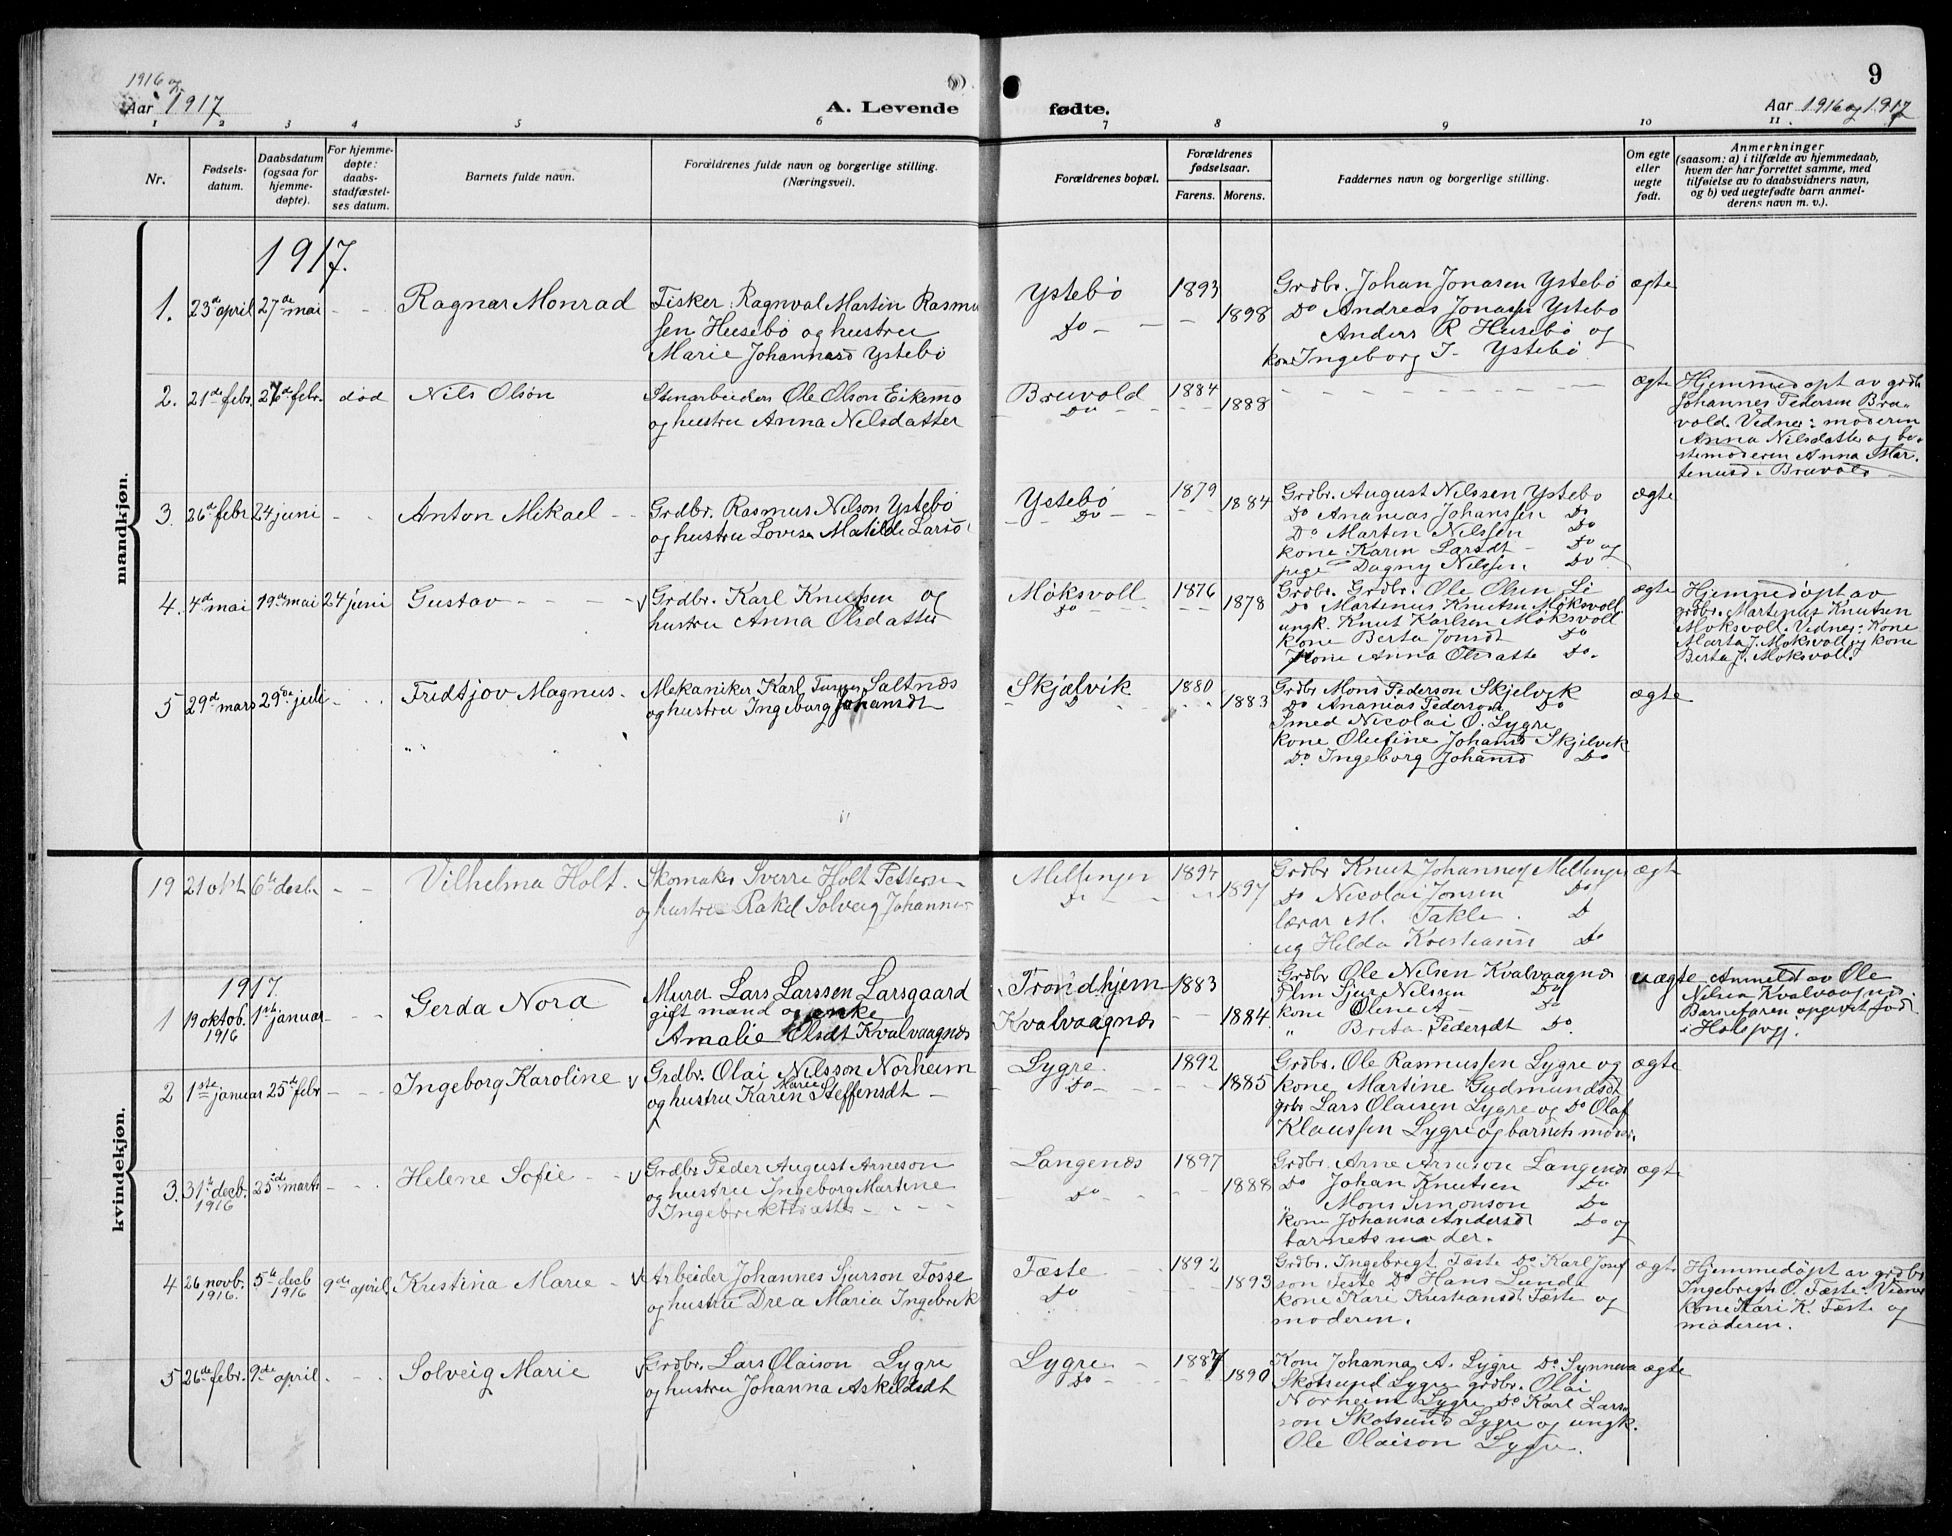 1916 og
Aar 1917
A. Levende
fødte.
9
Aar 1916 og 1917
1 2 3 4 5 6 7 8 9 10 11
Nr.
Fødsels-
datum.
Daabsdatum
(ogsaa for
hjemme-
døpte).
For hjemme-
døpte:
daabs-
stadfæstel-
ses datum.
Barnets fulde navn.
Forældrenes fulde navn og borgerlige stilling.
(Næringsvei).
Forældrenes bopæl.
Forældrenes
fødselsaar.
Farens. Morens.
Faddernes navn og borgerlige stilling.
Om egte
eller
uegte
født.
Anmerkninger
(saasom: a) i tilfælde av hjemmedaab,
hvem der har forrettet samme, med
tilføielse av to daabsvidners navn,
og b) ved uegtefødte barn anmel-
derens navn m. v.).
mandkjøn.
1917.
1. 23de april 27de mai - - Ragnar Monrad
Fisker Ragnval Martin Rasmu
sen Husebø og hustru
Marie Johannesd Ystebø
Ystebø
Do -
1893
1898
Grdbr. Johan Jonasen Ystebø
Do Andreas Jonasen Ystebø
Anders R Husebø og
kone Ingeborg J- Ystebø
ægte
2. 21de febr. 27de febr. død Nils Olsøn
Stenarbeiders Ole Olson Eikemo
og hustru Anna Nilsdatter
Bruvold
Do
1884
1888
ægte
Hjemmedøpt av grdb
Johannes Pedersen Bru-
vold. Vidner: moderen
Anna Nilsdatter og be-
stemoderen Anna Mar-
tenusd. Bruvold
3. 26de febr 24 juni - - Anton Mikael - -
Grdbr. Rasmus Nilson Ystebø
og hustru Lovise Matilde Larsd
Ystebø
Do
1879
1884
Grdbr. August Nilssen Ystebø
Do Ananias Johanssen Do
Do Marten Nilssen Do
kone Karen Larsdt - Do og
pige Dagny Nilssen Do
ægte
4. 4de mai 19de mai 24 juni Gustav - - -
Grdbr. Karl Knutsen og
hustru Anna Olsdatter
Møksvoll
do
1876
1878
Grdbr. Grdbr. Ole Olsen Li
Do Martenus Knutsen Møksvoll
ungk. Knut Karlsen Møksvoll
kone Berta Jonsdt Do
kone Anna Olsdatte Do.
ægte
Hjemmedøpt av
grdbr. Martenus Knutsen
Møksvoll. Vidner: Kone
Marta J. Møksvoll og kone
Berta J. Møksvoll.
5 29de mars 29de juli - Fridtjov Magnus -
Mekaniker Karl Saltnæs
og hustru Ingeborg Johansdt
Skjælvik
Do
1880
1883
Grdbr Mons Pederson Skjelvik
Do Ananias Pederson Do
Smed Nicolai O. Lygre
kone Olufine Johansd Skjelvik
Do Ingeborg Johansd Do
ægte
kvindekjøn.
19 21 okt 6te desb - - Vilhelma Holt.
Skomaker Sverre Holt Petterse
og hustru Rakel Solveig Johanne
Mellinger
Do
1894
1897
Grdbr Knut Johannes Mellinger
Do Nicolai Jonsen Do
lærer M. Takle. D
ug Hilda Do
ægt
1917.
1 19 oktob. 1ste januar - - Gerda Nora
1916
Murer Lars Larssen Larsgaard
gift mand og enke
Amalie Olsdt Kvalvaagnes
Trondhjem
Kvalvaagnæs
1883
1884
Grdbr Ole Nilsen Kvalvaagnæs
Sjur Nilssen Do
kone Olene A - Do
" Brita Pedersdt Do.
uægte
Anmeldt av Ole
Nilsen Kvalvaagnes.
Barnefaren opgivet født
i
2 1ste januar 25de febr - - Ingeborg Karoline
Grdbr. Olai Nilsson Norheim
og hustru Karen Marie Steffensdt -
Lygre.
Do
1892
1885
Grdbr. Ole Rasmussen Lygre og
kone Martine Gudmundsdt
grbr Lars Olaisen Lygre og Do Olaf
Klaussen Lygre og barnets moder.
ægte
3. 31te decb. 25de marts - - Helene Sofie - -
1916
Grdbr Peder August Arneson
og hustru Ingeborg Martine
Ingebrektsdatter - - -
Langenæs
Do
1897
1888
Grdbr. Arne Arneson Langenæs
Do Johan Knutsen Do
" Mons Simonson Do
kone Johanna Andersdt Do og
barnets moder.
ægte
4 26 novb. 5te decb 9de april Kristina Marie -
1916. 1916
Arbeider Johannes Sjurson Fosse
og hustru Drea Maria Ingebrik
Fæste
Do
1892
1893
Grdbr. Ingebrigt Fæste Do Karl Josef
son Feste Do Hans Lunda
kone Kari Kristiansdt Fæste og
moderen.
ægte
Hjemmedøpt av grdbr
Ingebrigt O. Fæste. Vidner
kone Kari K. Fæste og
moderen.
5 26de febr. 9de april - - Solveig Marie
Grdbr. Lars Olaison Lygre
og hustru Johanna Askildsdt
Lygre
Do
1887
1890
Kone Johanna A. Lygre Do Synneva
Skotsund Lygre grdbr. Olai
Norheim Lygre Do Karl Lars-
son Skotsund Lygre og ungk.
Ole Olaison Lygre.
ægte